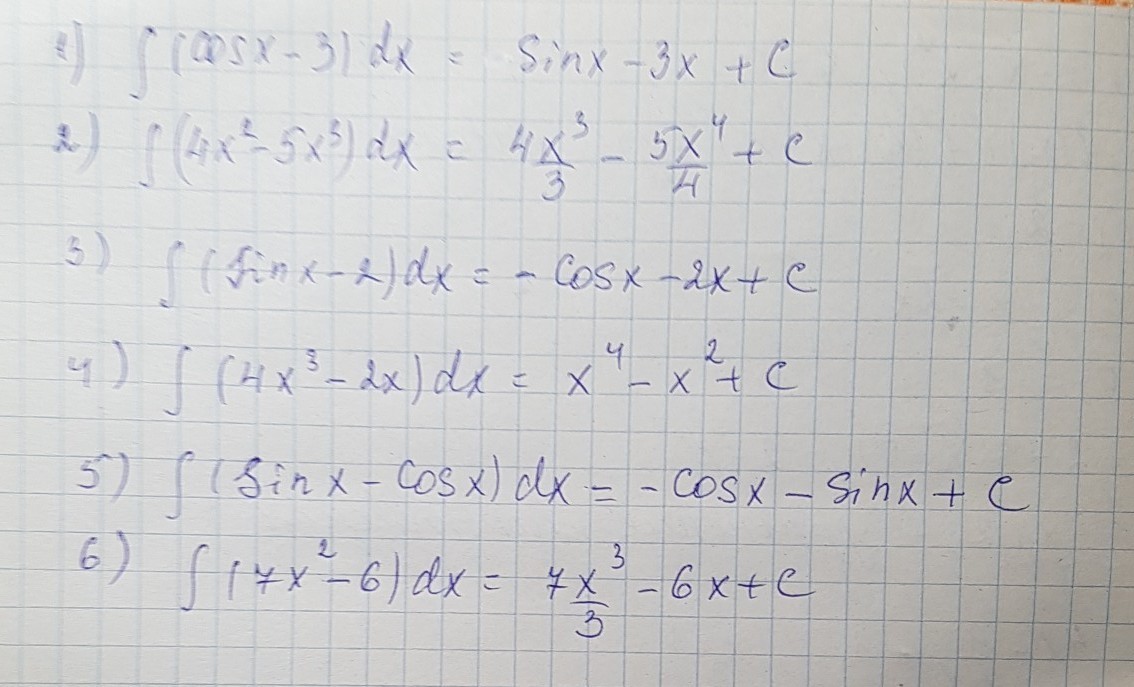 1) ∫(cosx-3)dx = Sinx-3x+C
2) ∫(4x²-5x³)dx = 4x³/3 - 5x⁴/4 + C
3) ∫(sinx-2)dx = -cosx-2x+C
4) ∫(4x³-2x)dx = x⁴-x²+C
5) ∫(sinx-cosx)dx = -cosx-sinx+C
6) ∫(7x²-6)dx = 7x³/3 -6x+C